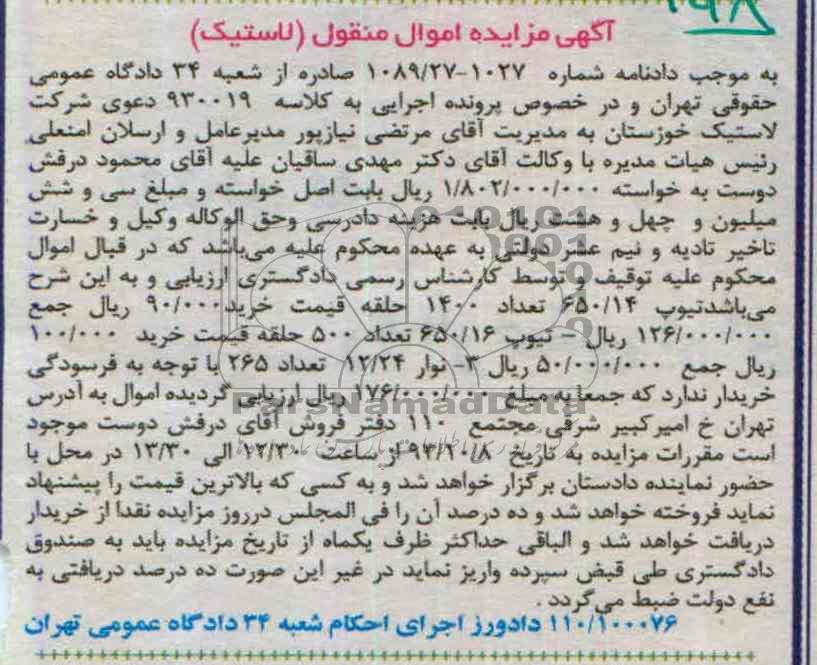 ۱۹۸
آگهی مزایده اموال منقول (لاستیک)
به موجب دادنامه شماره ۱۰۲۷-۱۰۸۹/۲۷ صادره از شعبه ۳۴ دادگاه عمومی
حقوقی تهران و در خصوص پرونده اجرایی به کلاسه ۹۳۰۰۱۹ دعوی شرکت
لاستیک خوزستان به مدیریت آقای مرتضی نیازپور مدیرعامل و ارسلان امنعلی
رئیس هیات مدیره با وکالت آقای دکتر مهدی ساقیان علیه آقای محمود درفش
دوست به خواسته ۱/۸۰۲/۰۰۰/۰۰۰ ریال بابت اصل خواسته و مبلغ سی و شش
میلیون و چهل و هشت ریال بابت هزینه دادرسی وحق الوکاله وکیل و خسارت
تاخیر تادیه و نیم عشر دولتی به عهده محکوم علیه می‌باشد که در قبال اموال
محکوم علیه توقیف و توسط کارشناس رسمی دادگستری ارزیابی و به این شرح
می‌باشدتیوپ ۶۵۰/۱۴ تعداد ۱۴۰۰ حلقه قیمت خرید۹۰/۰۰۰ ریال جمع
۱۲۶/۰۰۰/۰۰۰ ریال – تیوپ ۶۵۰/۱۶ تعداد ۵۰۰ حلقه قیمت خرید ۱۰۰/۰۰۰
ریال جمع ۵۰/۰۰۰/۰۰۰ ریال ۳- نوار ۱۲/۲۴ تعداد ۲۶۵ با توجه به فرسودگی
خریدار ندارد که جمعا به مبلغ ۱۷۶/۰۰۰/۰۰۰ ریال ارزیابی گردیده اموال به آدرس
تهران خ امیرکبیر شرقی مجتمع ۱۱۰ دفتر فروش آقای درفش دوست موجود
است مقررات مزایده به تاریخ ۹۳/۱۰/۸ از ساعت ۱۲/۳۰ الی ۱۳/۳۰ در محل با
حضور نماینده دادستان برگزار خواهد شد و به کسی که بالاترین قیمت را پیشنهاد
نماید فروخته خواهد شد و ده درصد آن را فی المجلس درروز مزایده نقدا از خریدار
دریافت خواهد شد و الباقی حداکثر ظرف یکماه از تاریخ مزایده باید به صندوق
دادگستری طی قبض سپرده واریز نماید در غیر این صورت ده درصد دریافتی به
نفع دولت ضبط می‌گردد .
۱۱۰/۱۰۰۰۷۶ دادورز اجرای احکام شعبه ۳۴ دادگاه عمومی تهران
ParsNamadData